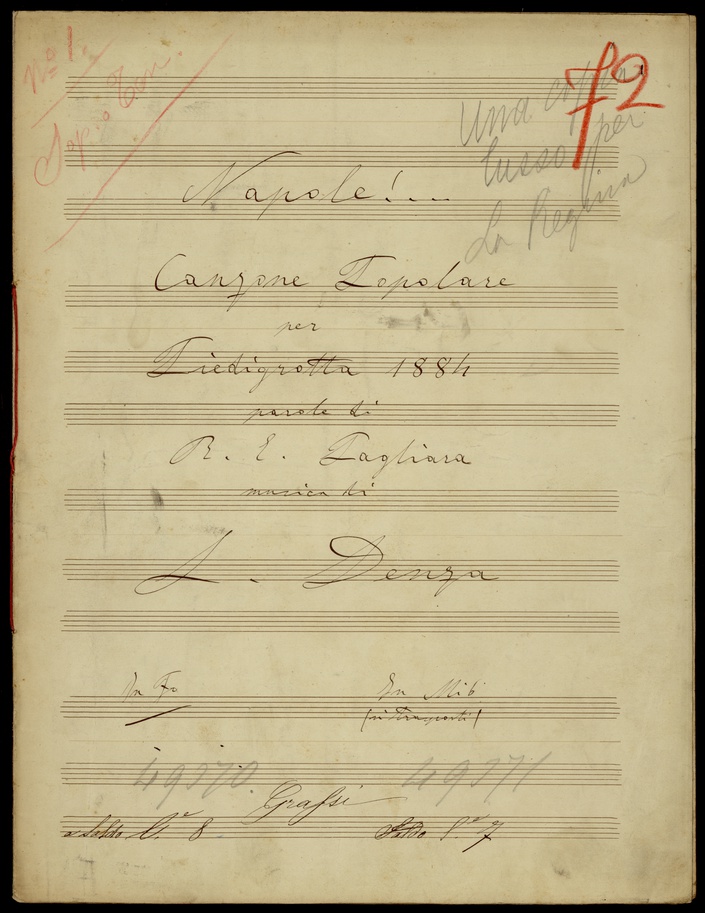 No 1
Sop. o Ten.
72
Una copia
lusso per
La Regina
Napole!...
Canzone Popolare
per
Piedigrotta 1884
parole di
R. E. Pagliara
musica di
L. Denza
In Fa
In Mib
(si trasporti)
49370
49371
Grassi
a Saldo 8
Saldo 7